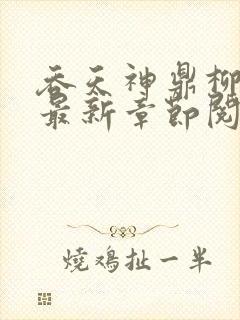 吞天神鼎柳
最新章節閱
燒鴻扯一半